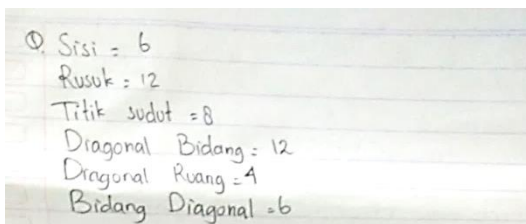 ①. Sisi = 6
Rusuk = 12
Titik sudut = 8
Diagonal Bidang = 12
Diagonal Ruang = 4
Bidang Diagonal = 6